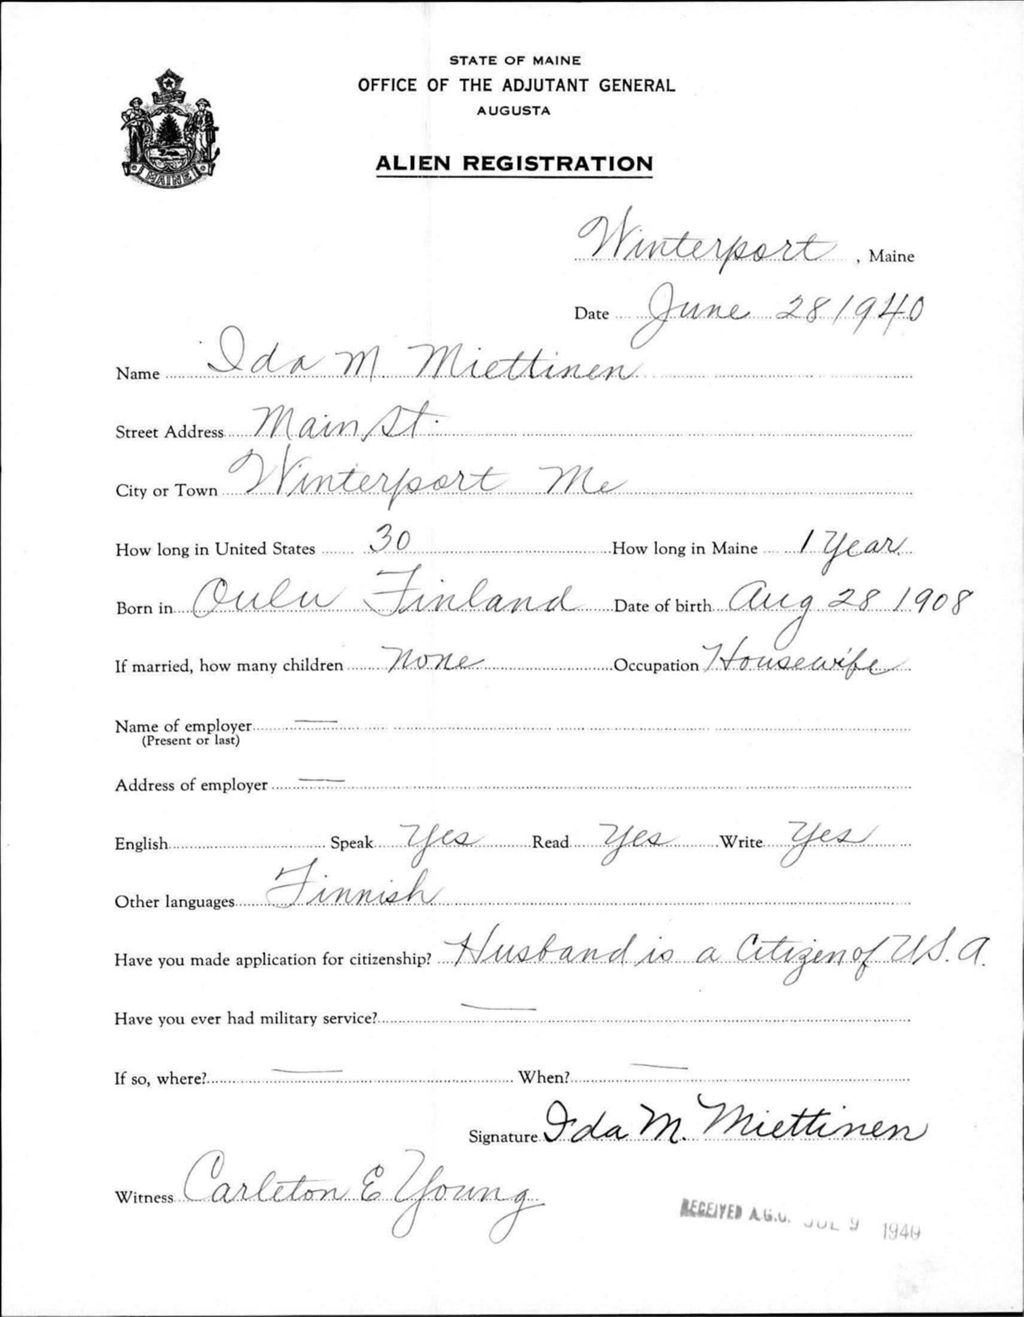 STATE OF MAINE
OFFICE OF THE ADJUTANT GENERAL
AUGUSTA
ALIEN REGISTRATION
MAINE
Winterport, Maine
Date June 28 1940
Name Ida M Miettinen
Street Address Main St.
City or Town Winterport Me
How long in United States 30 How long in Maine 1 Year
Born in Oulu Finland Date of birth Aug 28 1908
If married, how many children None Occupation Housewife
Name of employer —
(Present or last)
Address of employer —
English Speak Yes Read Yes Write Yes
Other languages Finnish
Have you made application for citizenship? Husband is a Citizen of U.S.A.
Have you ever had military service? —
If so, where? — When? —
Signature Ida M. Miettinen
Witness Carleton E Young
RECEIVED A.G.O. JUL 9 1940